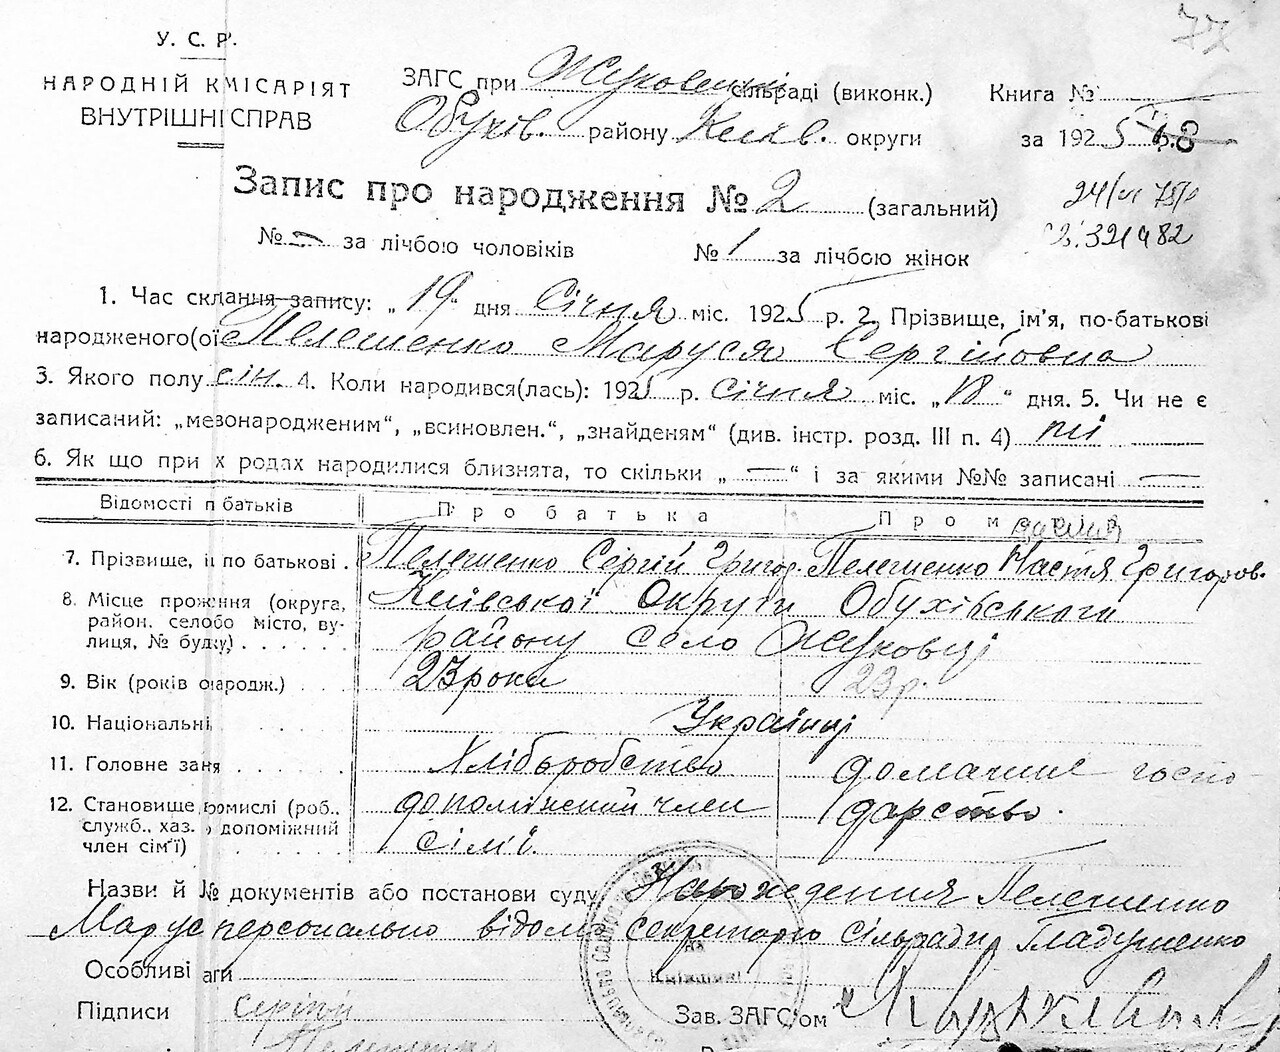 77
У. С. Р.
НАРОДНІЙ КМІСАРІЯТ
ВНУТРІШНІ СПРАВ
ЗАГС при Жуковецькі сільраді (виконк.)
Обухів. району Київ. округи
Книга №
за 1925 р. 8
Запис про народження № 2 (загальний)
24/
321982
№ — за лічбою чоловіків № 1 за лічбою жінок
1. Час склання запису: „19“ дня Січня міс. 1925 р. 2. Прізвище, ім'я, по-батькові
народженого(ої Пелешенко Маруся Сергійовна
3. Якого полу жін. 4. Коли народився(лась): 1925 р. січня міс. „18“ дня. 5. Чи не є
записаний: „мезонародженим“, „всиновлен.“, „знайденям“ (див. інстр. розд. III п. 4) ні
6. Як що при х родах народилися близнята, то скільки „—“ і за якими №№ записані —
Відомості п батьків
Про батька
Про м рів
7. Прізвище, і по батькові . Пелешенко Сергій Григор. Пелешенко Настя Григоров.
8. Місце прожння (округа, Київської Округи Обухівського
район. селобо місто, ву- району село Жуковці
лиця, № будку) . . . . . .
9. Вік (років онародж.) . . . 23 роки 23 р.
10. Національні Українці
11. Головне заня . . . . . Хлібьробство домашнє госпо-
12. Становище, ромислі (роб., допоміжний член дарство.
служб., хаз. допоміжний
член сім'ї) сімї.
Назви й № документів або постанови суду Нарождения Пелешенко
Марус персонально відомо секретарю сільради Гладушенко
Особливі аги
Підписи Сергій
Пелешенко
Зав. ЗАГС'ом
Київщині